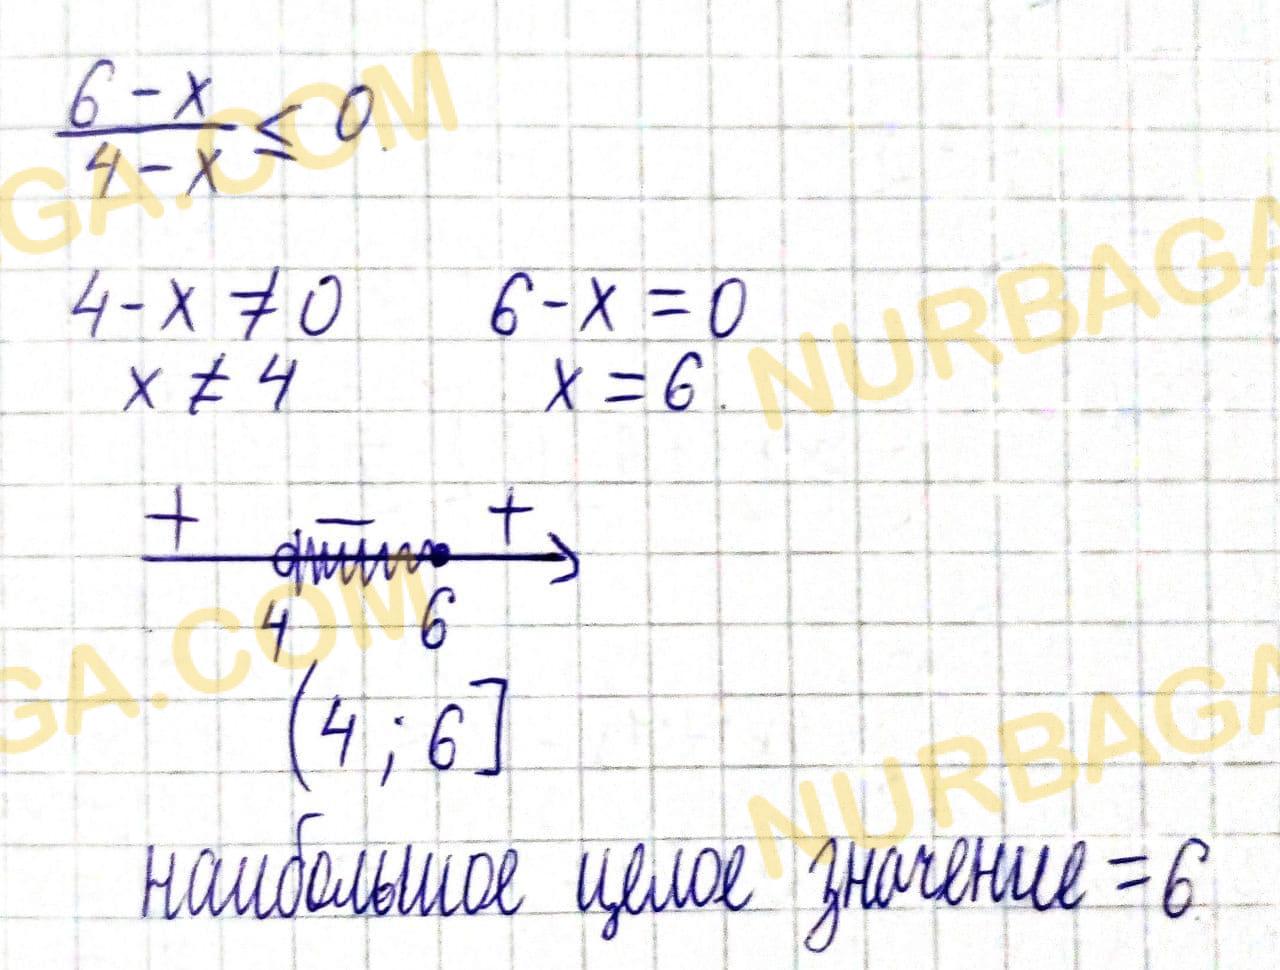 6 - x
4 - x ≤ 0
4 - x ≠ 0 6 - x = 0
x ≠ 4 x = 6
+ − +
4 6
(4 ; 6]
наибольшое целое значение = 6
GA.COM
NURBAGA
GA.COM
NURBAGA